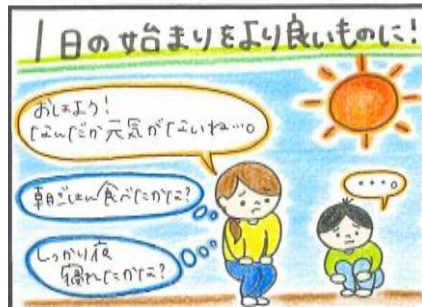 1日の始まりをより良いものに!
おはよう!
なんだか元気がないね…。
朝ごはん食べたかな?
しっかり夜
寝れたかな?
…。